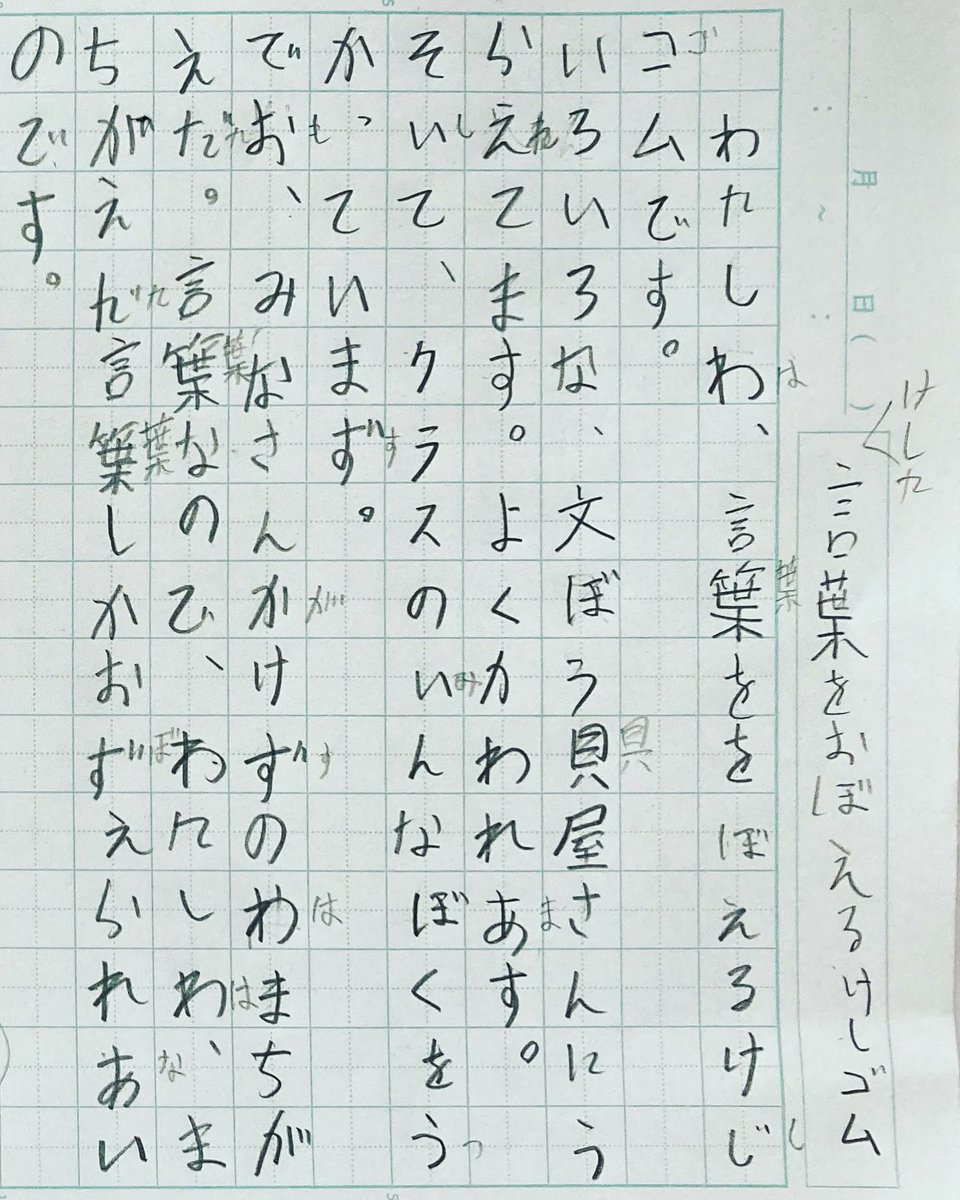 月 日( )
けした
言葉をおぼえるけしゴム
わたしわ、言葉ををぼえるけじ
は 葉 し
コムです。
ゴ
いろいろな、文ぼう貝屋さんにう
具
らえてます。よくかわれあす。
れ ま
そいて、クラスのいんなぼくをう
し み っ
かっていまず。
す
でお、みなさんかけずのわまちが
も が す は
えだ。言葉なので、わたしわ、ま
葉 は
ちがえだ言葉しかおずえられあい
た 葉 ぼ な
のです。